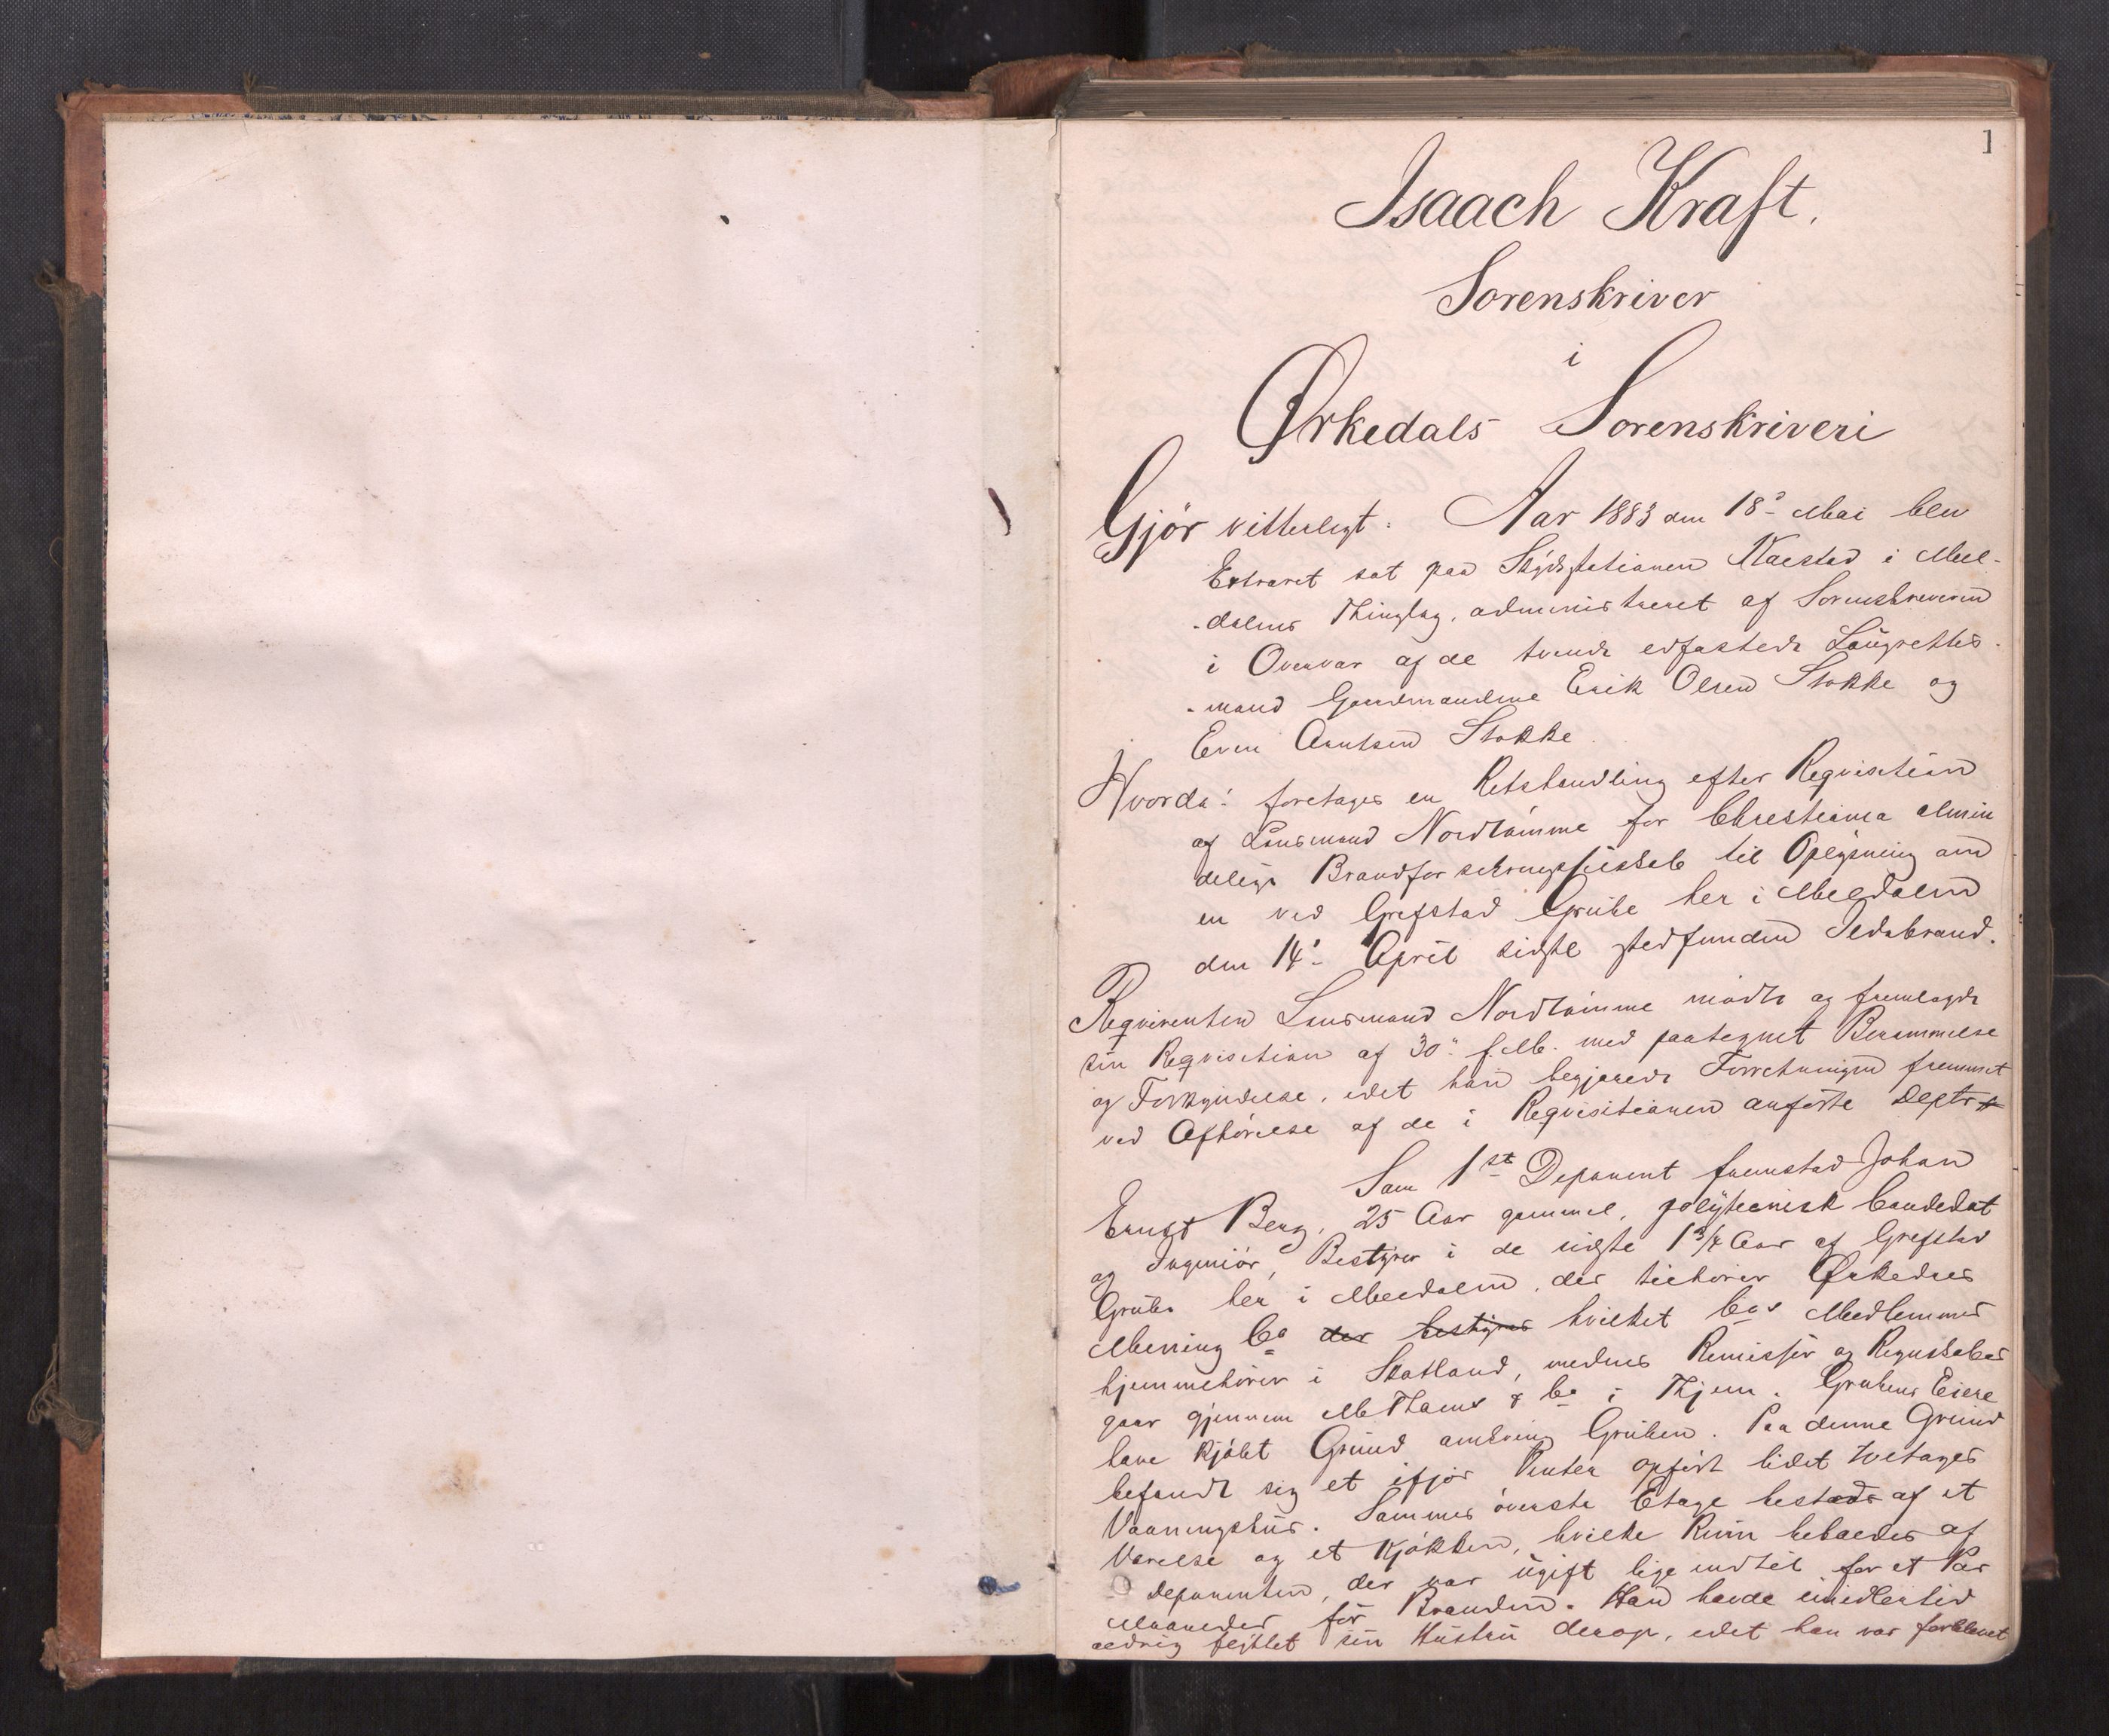 1
Isaach Kraft.
Sorenskriver
i
Ørkedals Sorenskriveri
Gjør vitterligt: Aar 1883 den 18d Mai blev
Extraret sat paa Skydsstationen Kaestad i Meel-
-dalens Thinglag, administreret af Sorenskriveren
i Overvær af de tvende edfæstede Laugrettes-
-mænd Gaardmændene Erik Olsen Stokke og
Even Arntsen Stokke.
Hvorda: foretages en Retshandling efter Reqvisition
af Lensmand Nordtømme for Christiania almin
delige Brandforsikringsselskab til Oplysning om
en ved Grefstad Grube her i Meldalen
den 14d April sidste stedfunden Ildebrand.
Reqvirenten Lensmand Nordtømme mødte og fremlagde
sin Reqvisition af 30te f. M. med paategnet Berammelse
og Forkyndelse, idet han begjærede Forretningen fremmet
ved Afhørelse af de i Reqvisitionen anførte Deptr
Som 1st Deponent fremstod Johan
Ernst Berg, 25 Aar gammel, polytecnisk Candidat
og Ingeniør, Bestyrer i de sidste 1 3/4 Aar af Grefstad
Grube her i Meldalen, der tilhører Ørkedals
Mening Co der bestyres hvilket Cos Medlemmer
hjemmehører i Skotland, medens Remisser og Regnskaber
gaar gjennem M Thams & Co i Thjem. Grubens Eiere
have kjøbt Grund omkring Gruben. Paa denne Grund
befandt sig et ifjor Vinter opført lidet toetages
Vaaningshus. Sammes øverste Etage bestod af et
Værelse og et Kjøkken, hvilke Rum beboedes af
Deponenten, der var ugift lige indtil for et Par
Maaneder før Branden. Han havde imidlertid
aldrig flyttet sin Hustru derop, idet han var forblevet